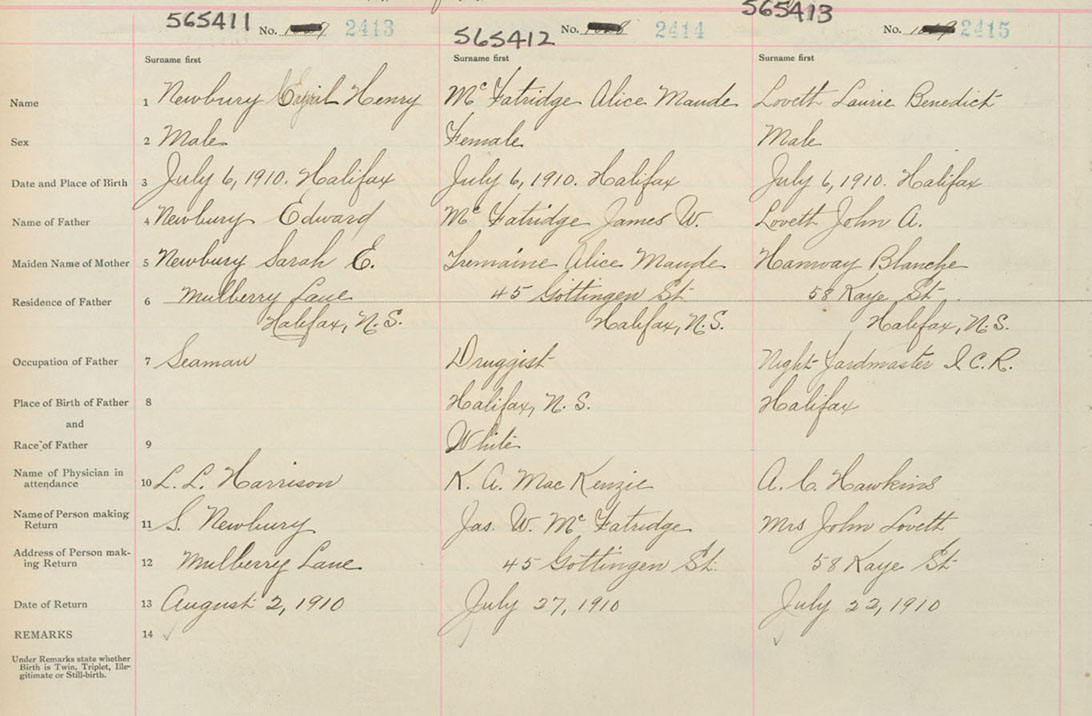 565411 No. 2413 565412 No. 2414 565413 No. 2415
Surname first Surname first Surname first
Name 1 Newbury Henry McFatridge Alice Maude Lovett Laurie Benedict
Sex 2 Male Female Male
Date and Place of Birth 3 July 6, 1910. Halifax July 6, 1910. Halifax July 6, 1910. Halifax
Name of Father 4 Newbury Edward McFatridge James W. Lovett John A.
Maiden Name of Mother 5 Newbury Sarah E. Tremaine Alice Maude Hamway Blanche
Residence of Father 6 Mulberry Lane 45 Gottingen St. 58 Kaye St.
Halifax, N.S. Halifax, N.S. Halifax, N.S.
Occupation of Father 7 Seaman Druggist Night Yardmaster I.C.R.
Place of Birth of Father 8 Halifax, N.S. Halifax
and
Race of Father 9 White
Name of Physician in
attendance 10 L. L. Harrison K. A. MacKenzie A. C. Hawkins
Name of Person making
Return 11 S. Newbury Jas. W. McFatridge Mrs John Lovett
Address of Person mak-
ing Return 12 Mulberry Lane 45 Gottingen St. 58 Kaye St.
Date of Return 13 August 2, 1910 July 27, 1910 July 22, 1910
REMARKS 14
Under Remarks state whether
Birth is Twin, Triplet, Ille-
gitimate or Still-birth.